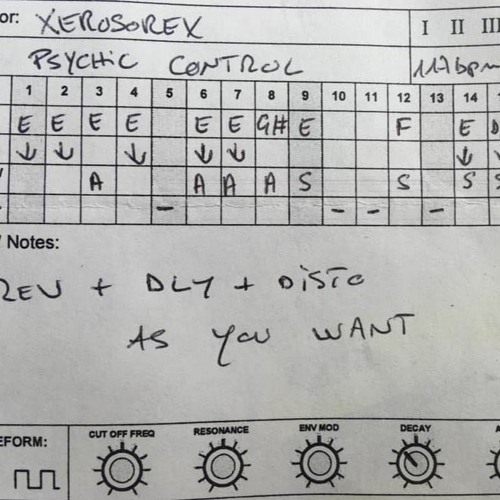 or: XEROSOREX I II III
PSYCHIC CONTROL 117bpm
1 2 3 4 5 6 7 8 9 10 11 12 13 14
E E E E E E G# E F E D
↓ ↓ ↓ ↓ ↓ ↓
A A A A S S S S
- - - -
/ Notes:
REV + DLY + DISTO
AS YOU WANT
EFORM: CUT OFF FREQ RESONANCE ENV MOD DECAY A